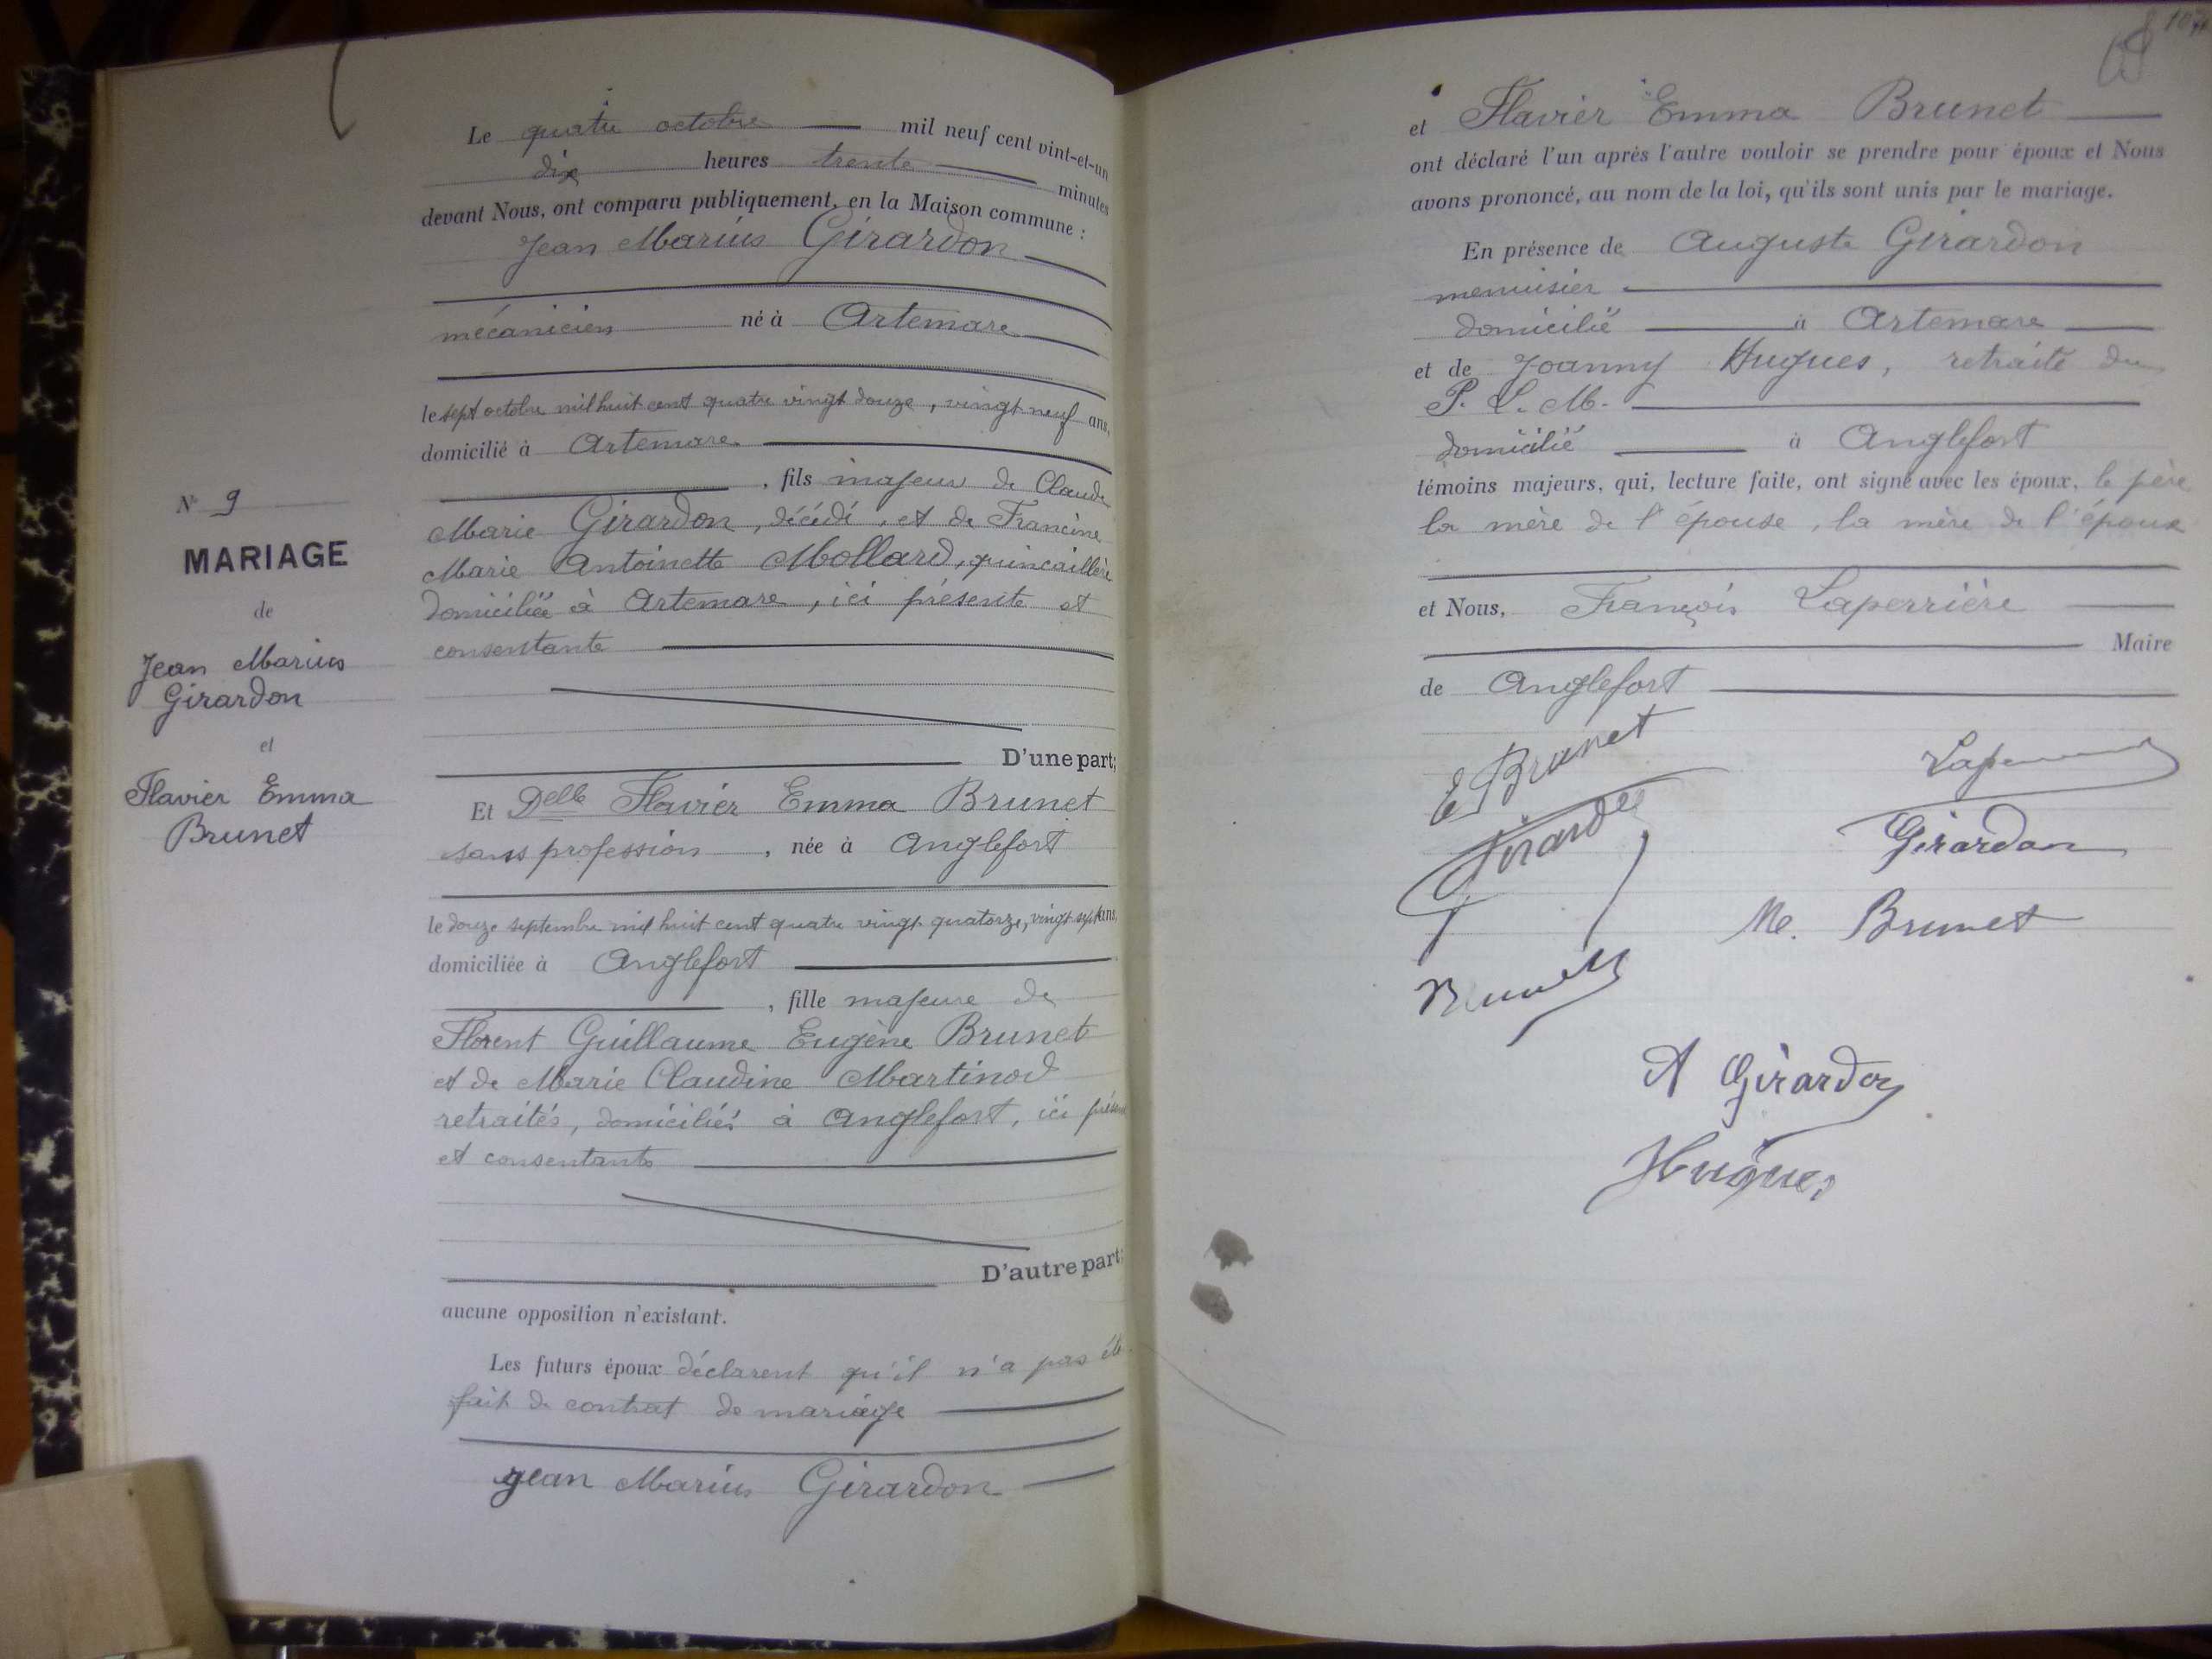 N° 9
MARIAGE
de
Jean Marius
Girardon
et
Flavier Emma
Brunet
Le quatre octobre mil neuf cent vint-et-un
dix heures trente minutes
devant Nous, ont comparu publiquement, en la Maison commune :
Jean Marius Girardon
mécanicien né à Artemare
le sept octobre mil huit cent quatre vingt douze, vingt neuf ans,
domicilié à Artemare
, fils majeur de Claude
Marie Girardon, décédé, et de Francine
Marie Antoinette Mollard, quincaillère
domiciliée à Artemare, ici présente et
consentante
D'une part;
Et Delle Flavier Emma Brunet
sans profession, née à Anglefort
le douze septembre mil huit cent quatre vingt quatorze, vingt sept ans,
domiciliée à Anglefort
, fille majeure de
Florent Guillaume Eugène Brunet
et de Marie Claudine Martinod
retraités, domiciliés à Anglefort, ici
et consentants
D'autre part;
aucune opposition n'existant.
Les futurs époux déclarent qu'il n'a pas été
fait de contrat de mariage
Jean Marius Girardon
et Flavier Emma Brunet
ont déclaré l'un après l'autre vouloir se prendre pour époux et Nous
avons prononcé, au nom de la loi, qu'ils sont unis par le mariage.
En présence de Auguste Girardon
menuisier
domicilié à Artemare
et de Joanny Hugues, retraité du
P. L. M.
domicilié à Anglefort
témoins majeurs, qui, lecture faite, ont signé avec les époux, le père
la mère de l'épouse, la mère de l'époux
et Nous, François Laperrière
Maire
de Anglefort
E Brunet
Girardon
Girardon
M. Brunet
Brunet
A Girardon
Hugues